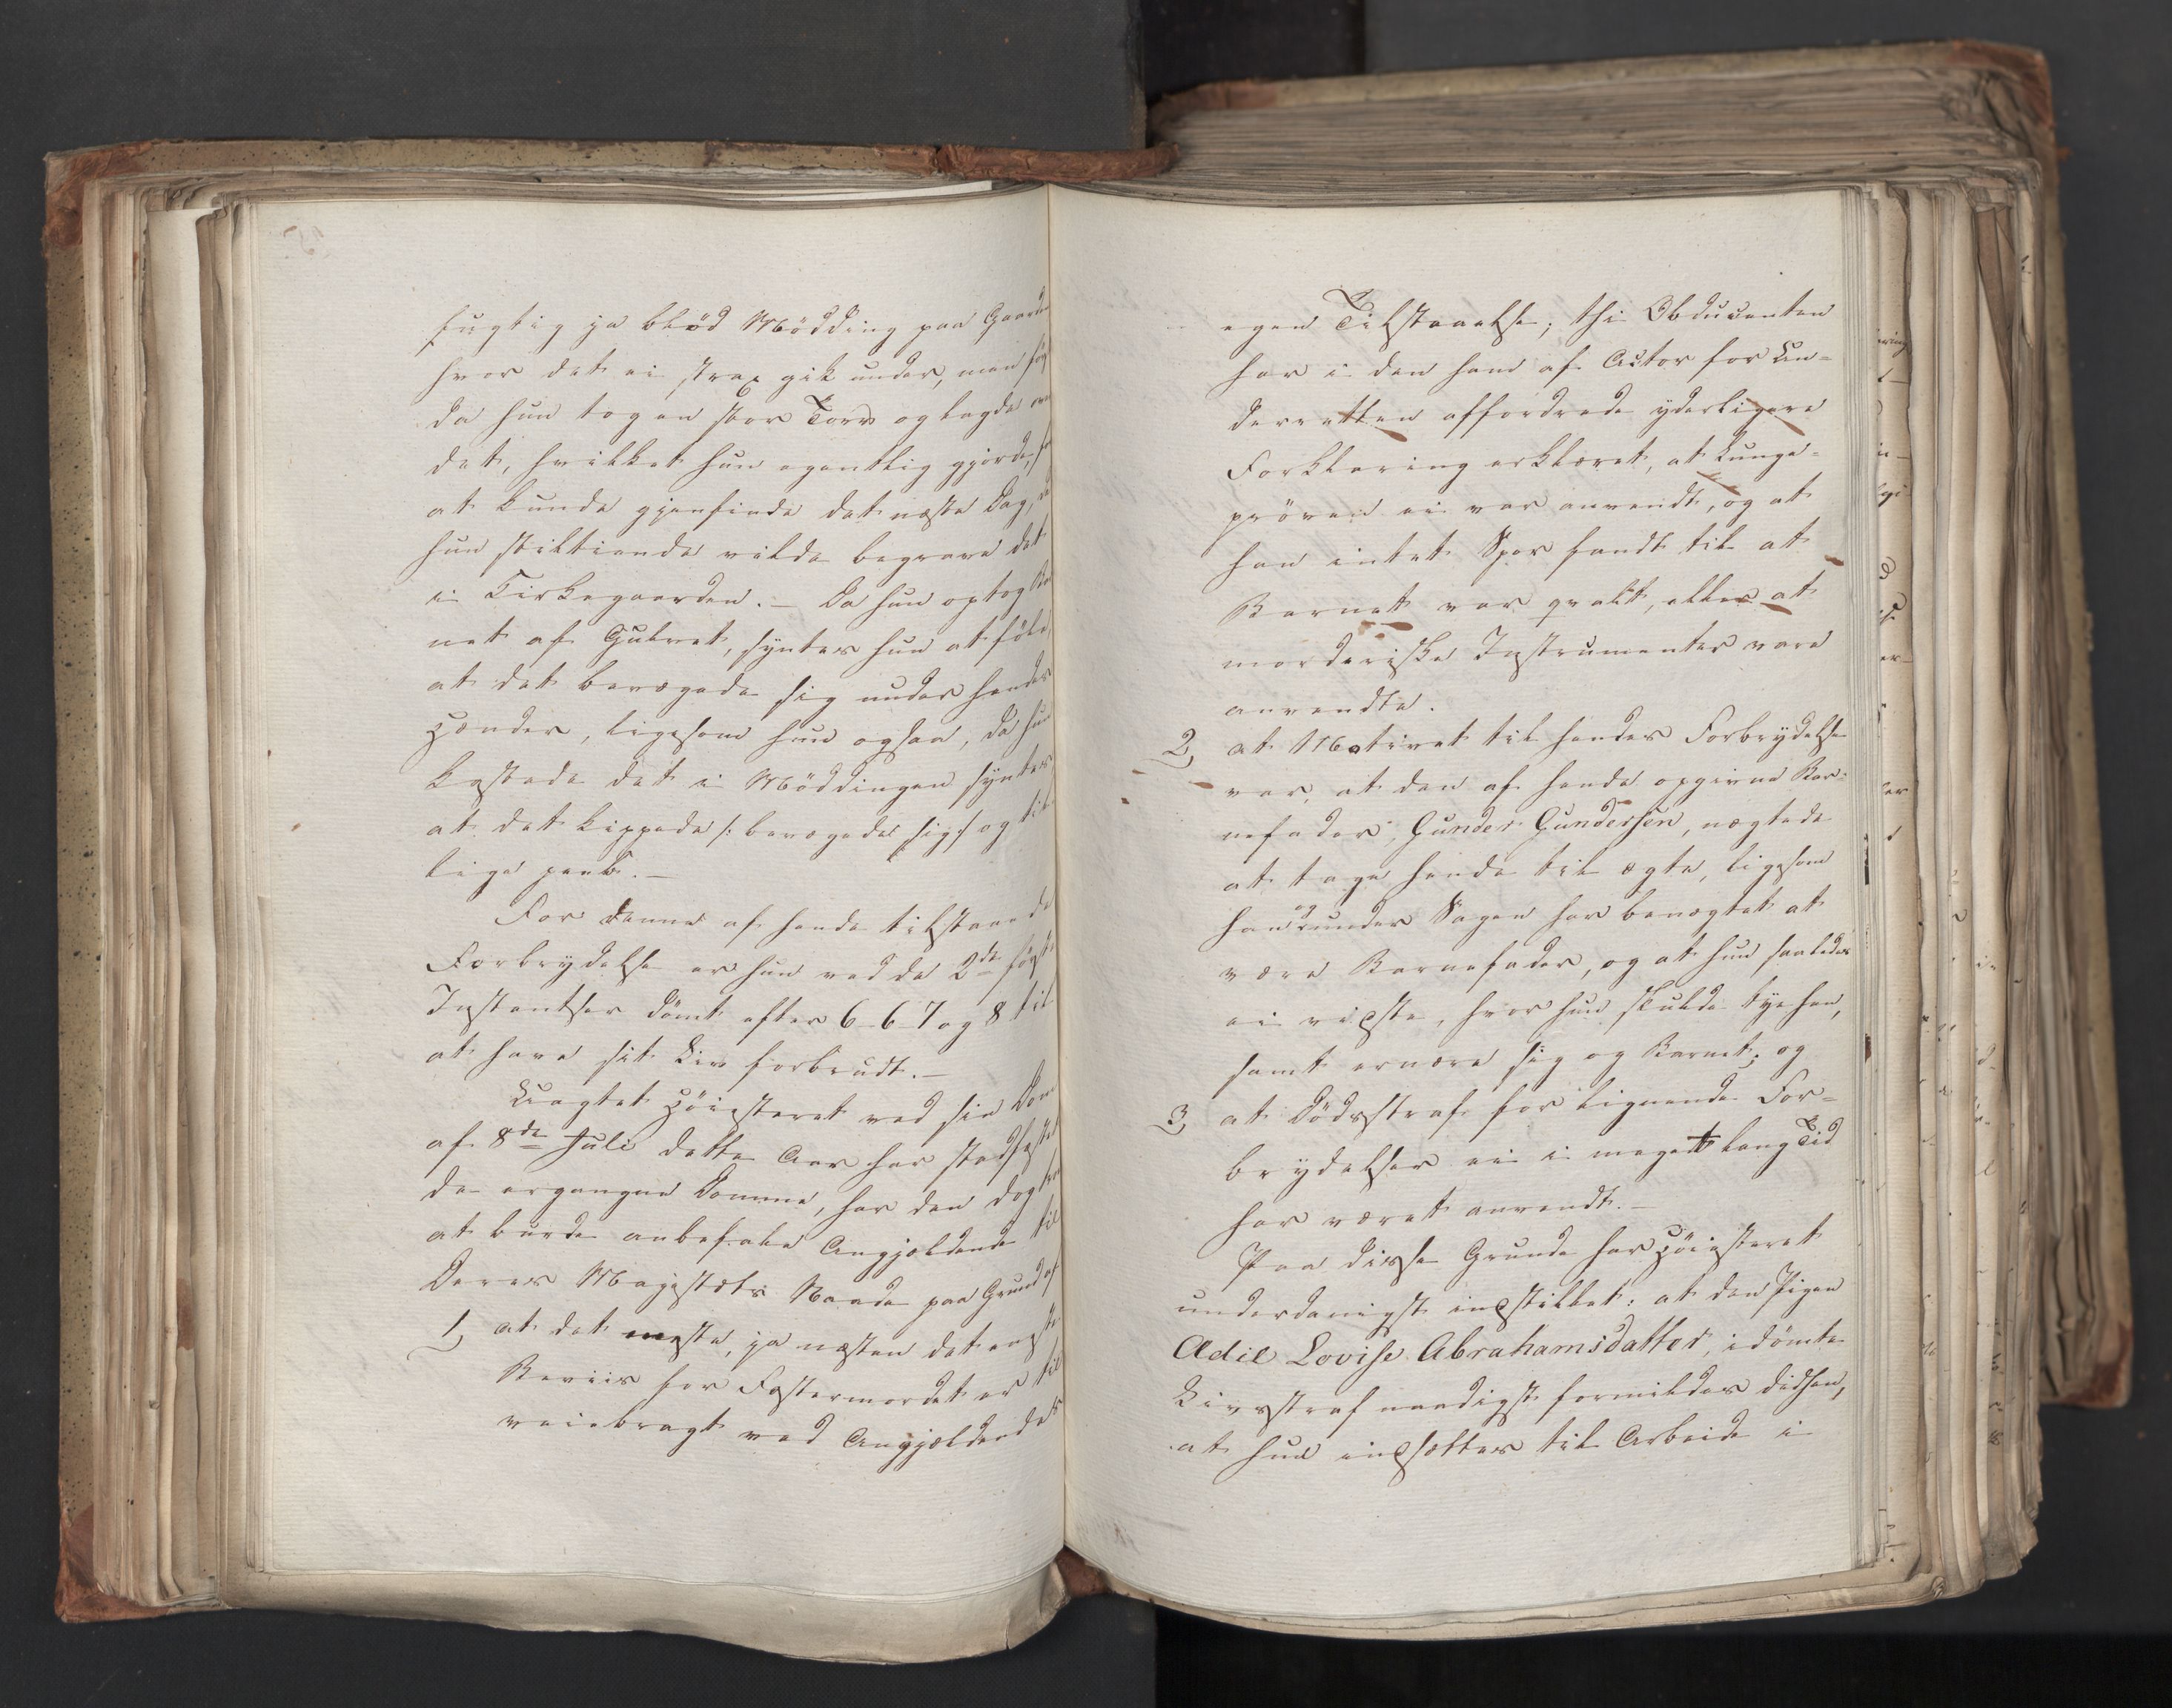 fugtig ja blød Mødding paa Gaarden
hvor det ei strax gik under, men først
da hun tog en stor Torv og lagde over
det, hvilket hun egentlig gjorde, for
at kunde gjenfinde det næste Dag, da
hun stiltiende vilde begrave det
i Kirkegaarden. – Da hun optog Bar
net af Gulvet, syntes hun at føle
at det bevægede sig under hendes
Hænder, ligesom hun ogsaa, da hun
kastede det i Møddingen syntes
at det kippede /: bevægede sig :/ og til
lige peeb. –
For denne af hende tilstaaede
Forbrydelse er hun ved de 2de første
Instantser dømt efter 6-6-7 og 8 til
at have sit Liv forbrudt. –
Uagtet Høiesteret ved sin Dom
af 8de Juli dette Aar har stadfæstet
de ergangne Domme, har den dog troet
at burde anbefale Angjældende til
Deres Majestæts Naade paa Grund af
1, at det meste, ja næsten det eneste
Beviis for Fostermordet er til
veiebragt ved Angjældendes
egen Tilstaaelse; thi Obducenten
har i den ham af Actor for Un-
derretten affordrede yderligere
Forklaring erklæret, at Lunge-
prøven ei var anvendt, og at
han intet Spor fandt til at
Barnet var qvalt, eller at
morderiske Instrumenter vare
anvendte.
2, at Motivet til hendes Forbrydelse
var, at den af hende opgivne Bar-
nefader, Gunder Gundersen, nægtede
at tage hende til ægte, ligesom
han og under Sagen har benægtet at
være Barnefader, og at hun saaledes
ei vidste, hvor hun skulde tye hen,
samt ernære sig og Barnet; og
3, at Dødsstraf for lignende For-
brydelser ei i meget lang Tid
har været anvendt. –
Paa disse Grunde har Høiesteret
underdanigst indstillet: at den Pigen
Adil Lovise Abrahamsdatter, idømte
Livsstraf naadigst formildes didhen,
at hun indsættes til Arbeide i